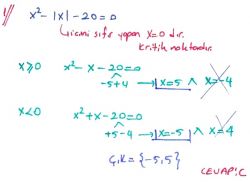 1/ x² - |x| - 20 = 0
içini sıfır yapan x=0 dır.
Kritik noktadır.
x≥0 x² - x - 20 = 0
-5+4 → x=5 ∧ x=-4
x<0 x² + x - 20 = 0
+5-4 → x=-5 ∧ x=4
Ç.K = {-5,5}
CEVAP: C